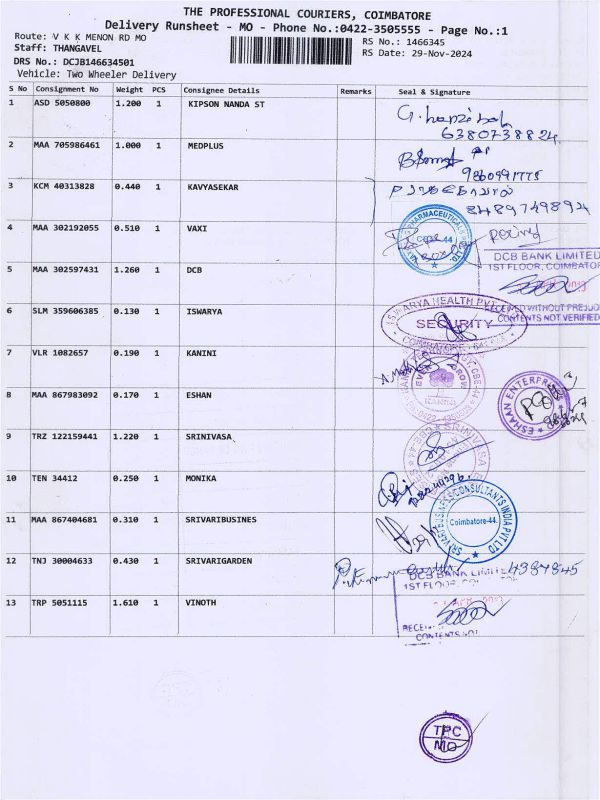 THE PROFESSIONAL COURIERS, COIMBATORE
Delivery Runsheet - MO - Phone No.:0422-3505555 - Page No.:1
Route: V K K MENON RD MO
RS No.: 1466345
Staff: THANGAVEL
RS Date: 29-Nov-2024
DRS No.: DCJB146634501
Vehicle: Two Wheeler Delivery
S No Consignment No Weight PCS Consignee Details Remarks Seal & Signature
1 ASD 5050800 1.200 1 KIPSON NANDA ST
6380738824
2 MAA 705986461 1.000 1 MEDPLUS
3 KCM 40313828 0.440 1 KAVYASEKAR
8489749892
4 MAA 302192055 0.510 1 VAXI
DCB BANK LIMITED
1ST FLOOR, COIMBATOR
5 MAA 302597431 1.260 1 DCB
CONTENTS NOT VERIFIED
6 SLM 359606385 0.130 1 ISWARYA
ISWARYA HEALTH PVT
SECURITY
7 VLR 1082657 0.190 1 KANINI
8 MAA 867983092 0.170 1 ESHAN
ESHAAN ENTERPRISES
9 TRZ 122159441 1.220 1 SRINIVASA
10 TEN 34412 0.250 1 MONIKA
11 MAA 867404681 0.310 1 SRIVARIBUSINES
SRIVARI BUSINESS CONSULTANTS INDIA PVT LTD
Coimbatore-44.
12 TNJ 30004633 0.430 1 SRIVARIGARDEN
DCB BANK LIMITE
1ST FLOOR
13 TRP 5051115 1.610 1 VINOTH
CONTENTS NOT
TPC
MO